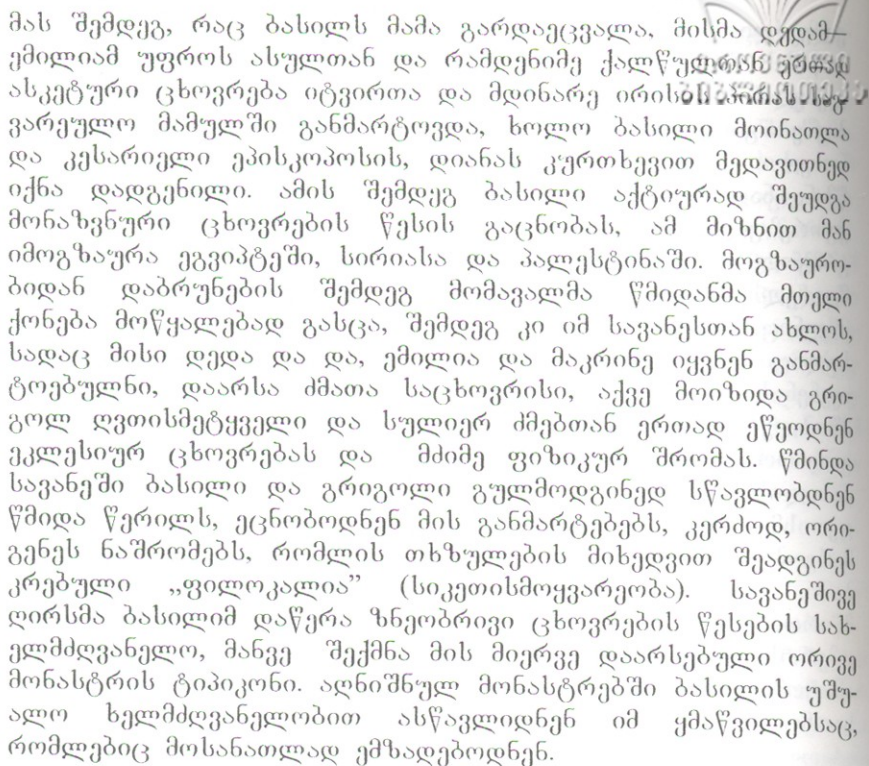 მას შემდეგ, რაც ბასილს მამა გარდაეცვალა, მისმა დედამ—
ემილიამ უფროს ასულთან და რამდენიმე ქალწულთან ერთად
ასკეტური ცხოვრება იტვირთა და მდინარე ირისის პირას საგ-
ვარეულო მამულში განმარტოვდა, ხოლო ბასილი მოინათლა
და კესარიელი ეპისკოპოსის, დიანას კურთხევით მედავითნედ
იქნა დადგენილი. ამის შემდეგ ბასილი აქტიურად შეუდგა
მონაზვნური ცხოვრების წესის გაცნობას, ამ მიზნით მან
იმოგზაურა ეგვიპტეში, სირიასა და პალესტინაში. მოგზაურო-
ბიდან დაბრუნების შემდეგ მომავალმა წმიდანმა მთელი
ქონება მოწყალებად გასცა, შემდეგ კი იმ სავანესთან ახლოს,
სადაც მისი დედა და და, ემილია და მაკრინე იყვნენ განმარ-
ტოებულნი, დაარსა ძმათა საცხოვრისი, აქვე მოიზიდა გრი-
გოლ ღვთისმეტყველი და სულიერ ძმებთან ერთად ეწეოდნენ
ეკლესიურ ცხოვრებას და მძიმე ფიზიკურ შრომას. წმინდა
სავანეში ბასილი და გრიგოლი გულმოდგინედ სწავლობდნენ
წმიდა წერილს, ეცნობოდნენ მის განმარტებებს, კერძოდ, ორი-
გენეს ნაშრომებს, რომლის თხზულების მიხედვით შეადგინეს
კრებული „ფილოკალია” (სიკეთისმოყვარეობა). სავანეშივე
ღირსმა ბასილიმ დაწერა ზნეობრივი ცხოვრების წესების სახ-
ელმძღვანელო, მანვე შექმნა მის მიერვე დაარსებული ორივე
მონასტრის ტიპიკონი. აღნიშნულ მონასტრებში ბასილის უშუ-
ალო ხელმძღვანელობით ასწავლიდნენ იმ ყმაწვილებსაც,
რომლებიც მოსანათლად ემზადებოდნენ.